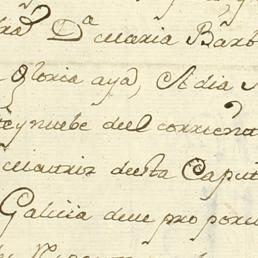 Dª Maria Barb
Gloria aya, El dia
eynuebe del corrient
Matriz desta Caput
Galicia deve pro porci